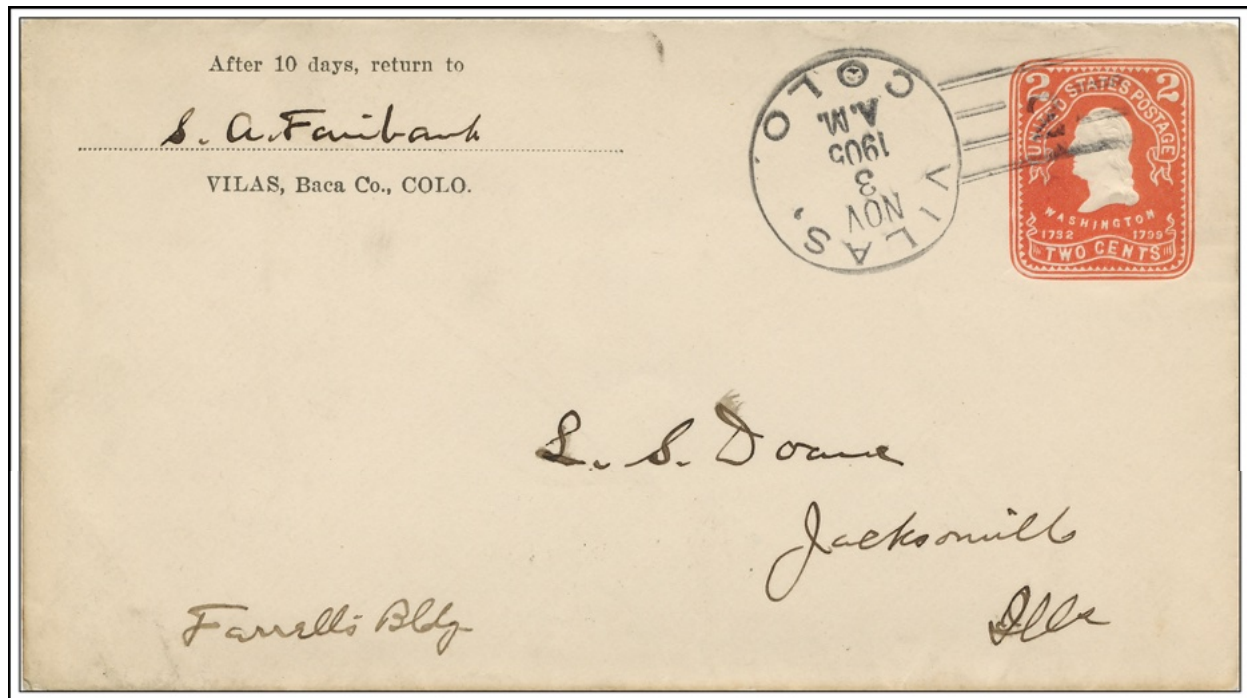 After 10 days, return to
S. A. Fairbank
VILAS, Baca Co., COLO.
VILAS, COLO
NOV
3
1905
A.M.
2 2
UNITED STATES POSTAGE
WASHINGTON
1732 1799
TWO CENTS
L. S. Doane
Jacksonville
Ills
Farrell's Bldg